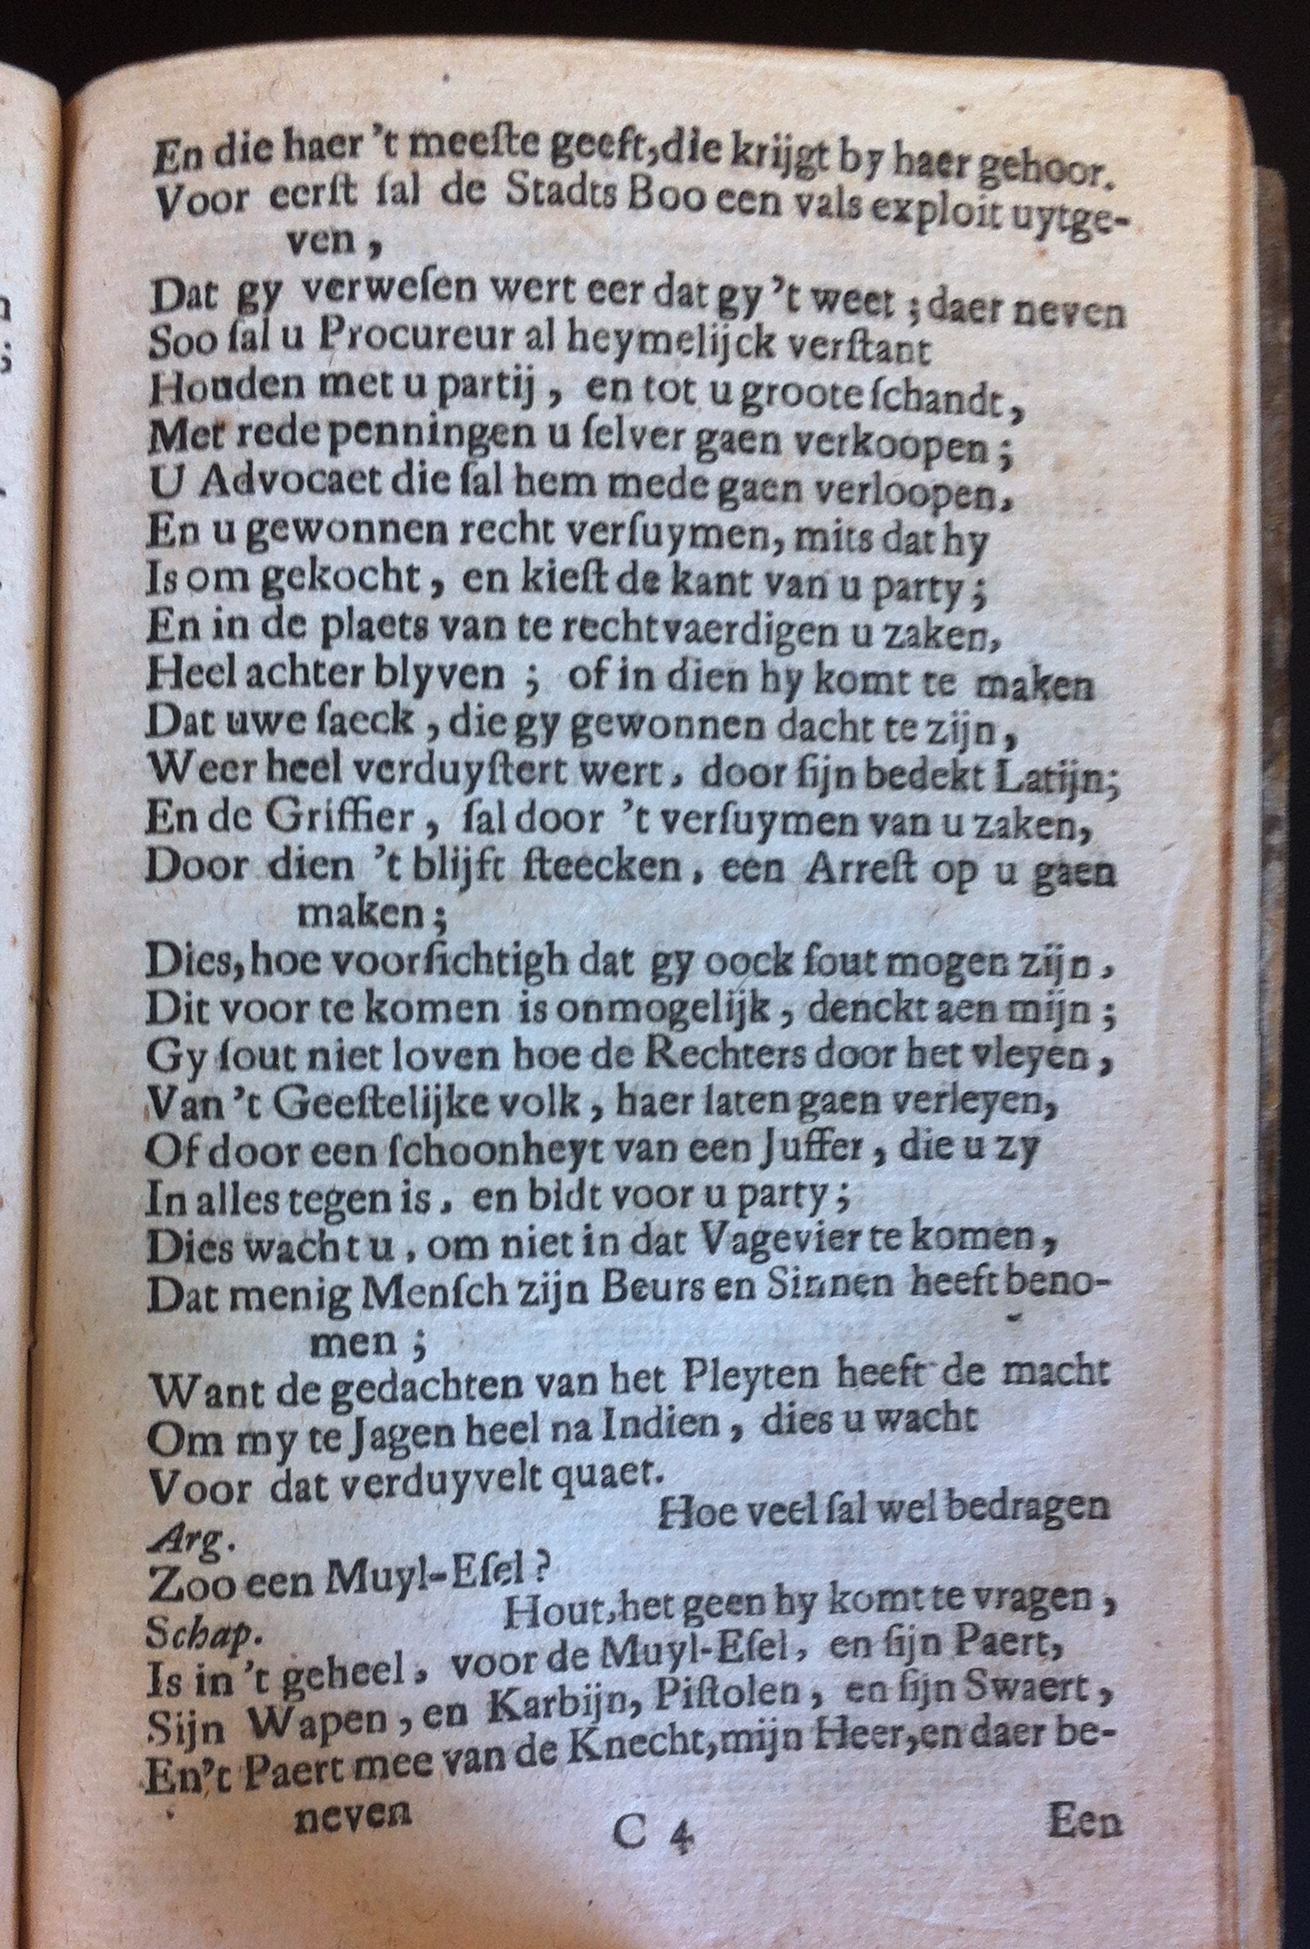 En die haer 't meeſte geeft, die krijgt by haer gehoor.
Voor eerſt ſal de Stadts Boo een vals exploit uytge-
ven,
Dat gy verweſen wert eer dat gy 't weet; daer neven
Soo ſal u Procureur al heymelijck verſtant
Houden met u partij, en tot u groote ſchandt,
Met rede penningen u ſelver gaen verkoopen;
U Advocaet die ſal hem mede gaen verloopen,
En u gewonnen recht verſuymen, mits dat hy
Is om gekocht, en kieſt de kant van u party;
En in de plaets van te rechtvaerdigen u zaken,
Heel achter blyven; of in dien hy komt te maken
Dat uwe ſaeck, die gy gewonnen dacht te zijn,
Weer heel verduyſtert wert, door ſijn bedekt Latijn;
En de Griffier, ſal door 't verſuymen van u zaken,
Door dien 't blijft ſteecken, een Arreſt op u gaen
maken;
Dies, hoe voorſichtigh dat gy oock ſout mogen zijn,
Dit voor te komen is onmogelijk, denckt aen mijn;
Gy ſout niet loven hoe de Rechters door het vleyen,
Van 't Geeſtelijke volk, haer laten gaen verleyen,
Of door een ſchoonheyt van een Juffer, die u zy
In alles tegen is, en bidt voor u party;
Dies wacht u, om niet in dat Vagevier te komen,
Dat menig Menſch zijn Beurs en Sinnen heeft beno-
men;
Want de gedachten van het Pleyten heeft de macht
Om my te Jagen heel na Indien, dies u wacht
Voor dat verduyvelt quaet.
Arg. Hoe veel ſal wel bedragen
Zoo een Muyl-Eſel?
Schap. Hout, het geen hy komt te vragen,
Is in 't geheel, voor de Muyl-Eſel, en ſijn Paert,
Sijn Wapen, en Karbijn, Piſtolen, en ſijn Swaert,
En 't Paert mee van de Knecht, mijn Heer, en daer be-
neven
C 4 Een